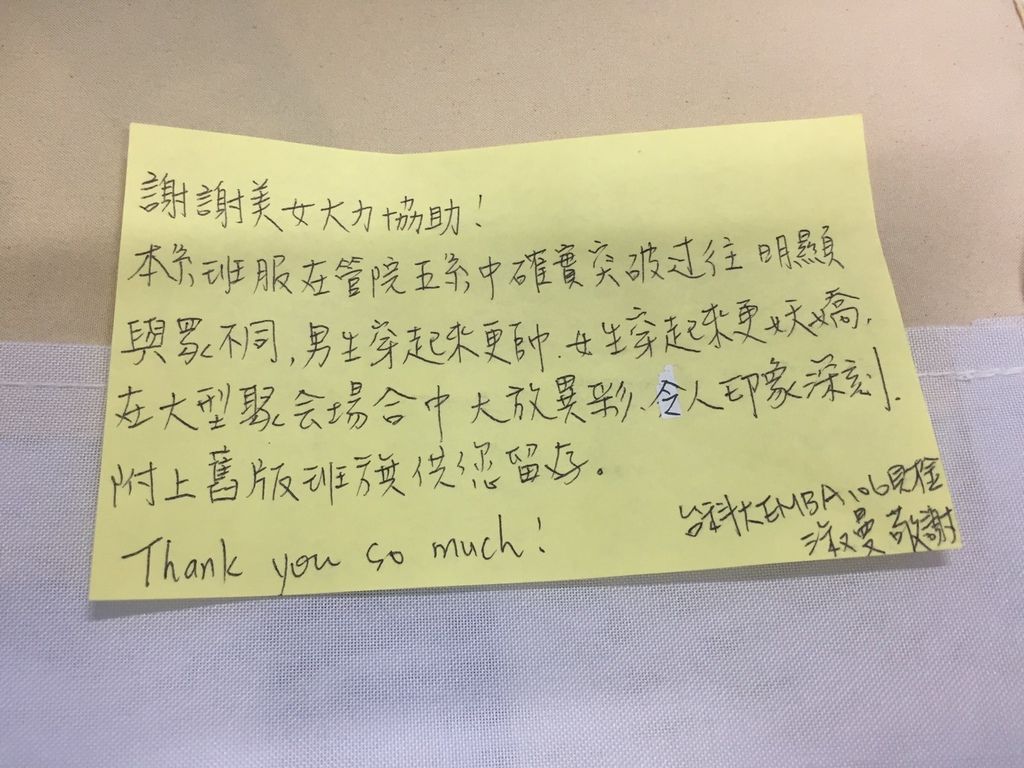 謝謝美女大力協助!
本系班服在管院五系中確實突破过往 明顯
與眾不同,男生穿起來更帥.女生穿起來更妖嬌,
在大型聚会場合中大放異彩、令人印象深刻.
附上舊版班旗供您留存。
Thank you so much!
台科大EMBA 106財金
淑曼 敬謝